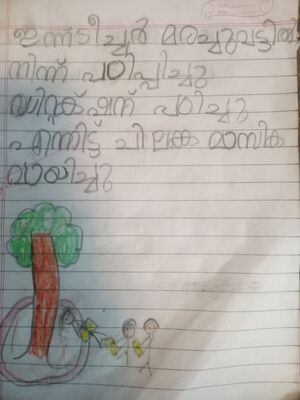 ഇന്ന്ടീച്ചർ മരച്ചുവട്ടിൽ
നിന്ന് പഠിപ്പിച്ചു
പഠിച്ചു
എന്നിട്ട് ചിലങ്ക മാസിക
വായിച്ചു